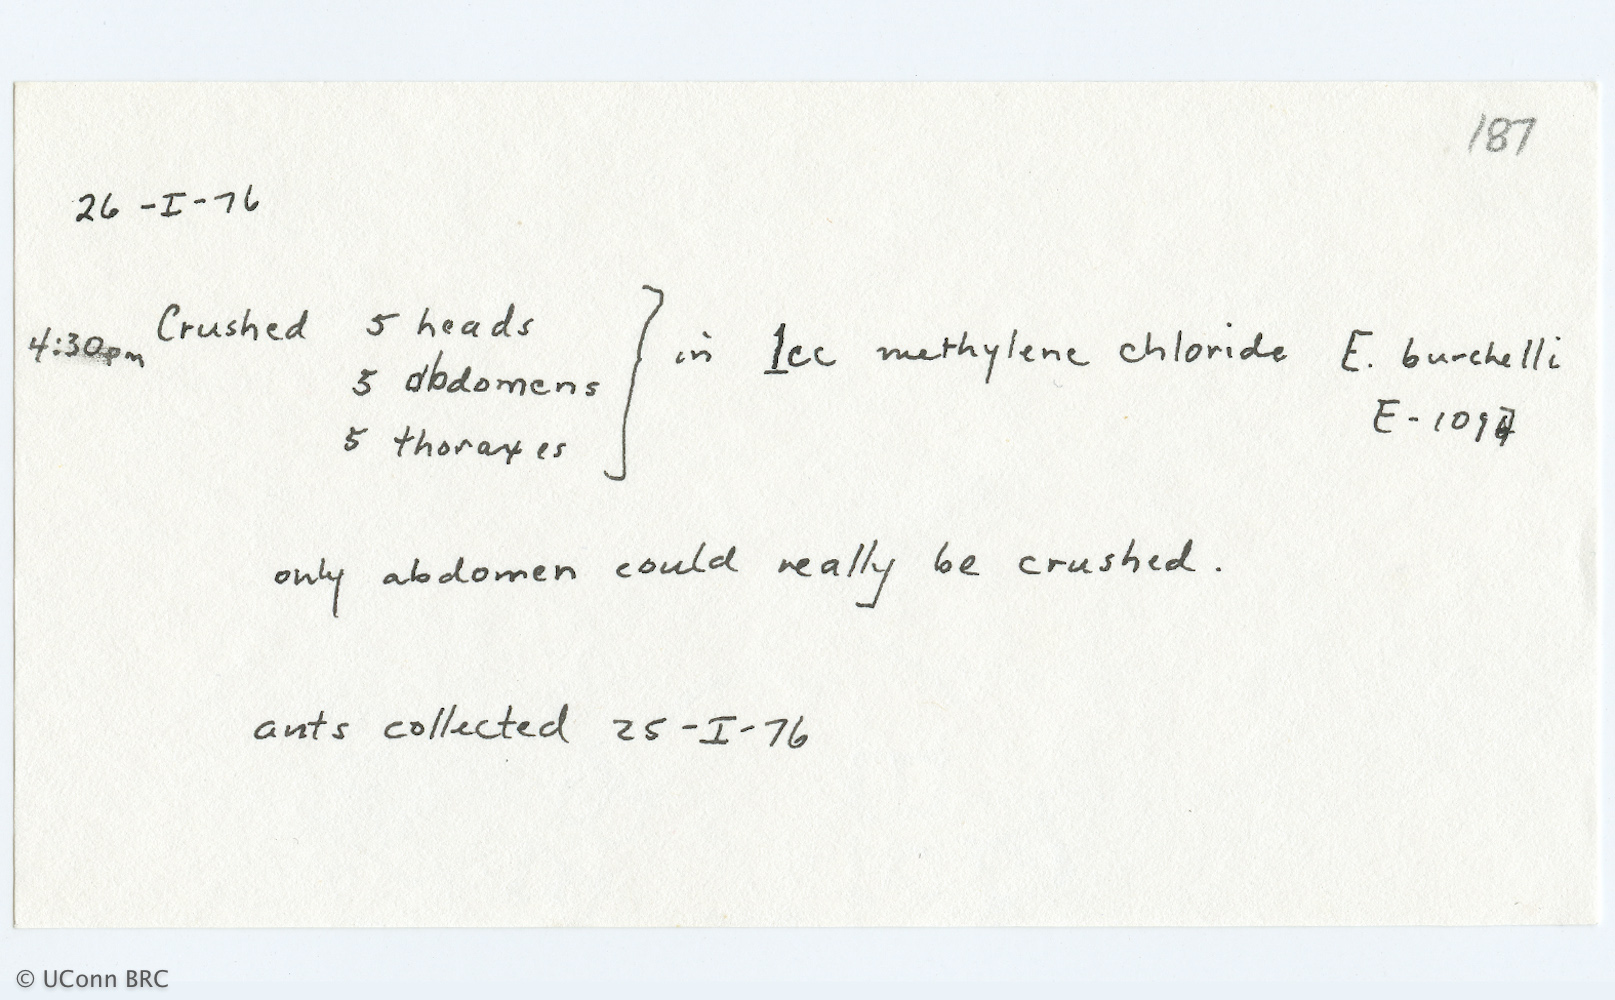 187
26-I-76
4:30pm Crushed 5 heads
5 abdomens
5 thoraxes
in 1cc methylene chloride E. burchelli
only abdomen could really be crushed.
ants collected 25-I-76
© UConn BRC